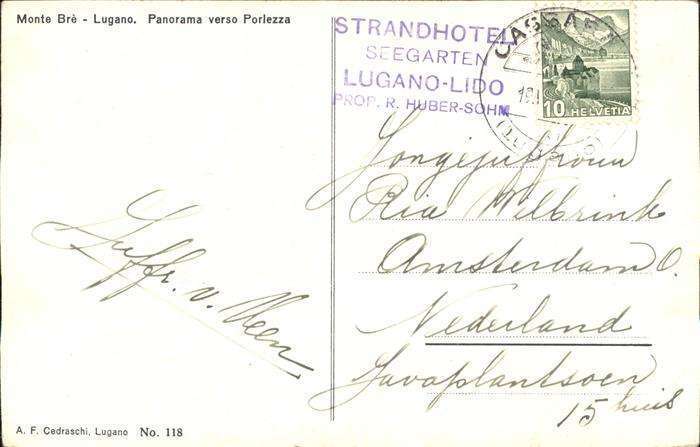 Monte Brè - Lugano. Panorama verso Porlezza
STRANDHOTEL
SEEGARTEN
LUGANO-LIDO
PROP. R. HUBER-SOHM
10 HELVETIA
Jongejuffrouw
Ria Welbrink
Amsterdam O.
Nederland
Javaplantsoen
15 huis
Juffr. v. Veen
A. F. Cedraschi, Lugano No. 118